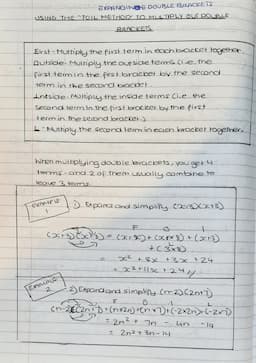 EXPANDING DOUBLE BRACKETS
USING THE "FOIL METHOD TO MULTIPLY OUT DOUBLE
BRACKETS
First: Multiply the first term in each bracket together.
Outside: Multiply the outside terms (i.e. the
first term in the first bracket by the second
term in the second bracket
Inside: Multiply the inside terms (i.e. the
second term in the first bracket by the first
term in the second bracket.)
L: Multiply the second term in each bracket together.
When multiplying double brackets, you get 4
terms - and 2 of them usually combine to
leave 3 terms.
EXAMPLE 1
1) Expand and simplify (x+3)(x+8)
F O I
= x² + 8x + 3x + 24
= x² + 11x + 24 //
EXAMPLE 2
2) Expand and simplify (n-2)(2n+7)
F O I L
= 2n² + 7n - 4n - 14
= 2n² + 3n - 14